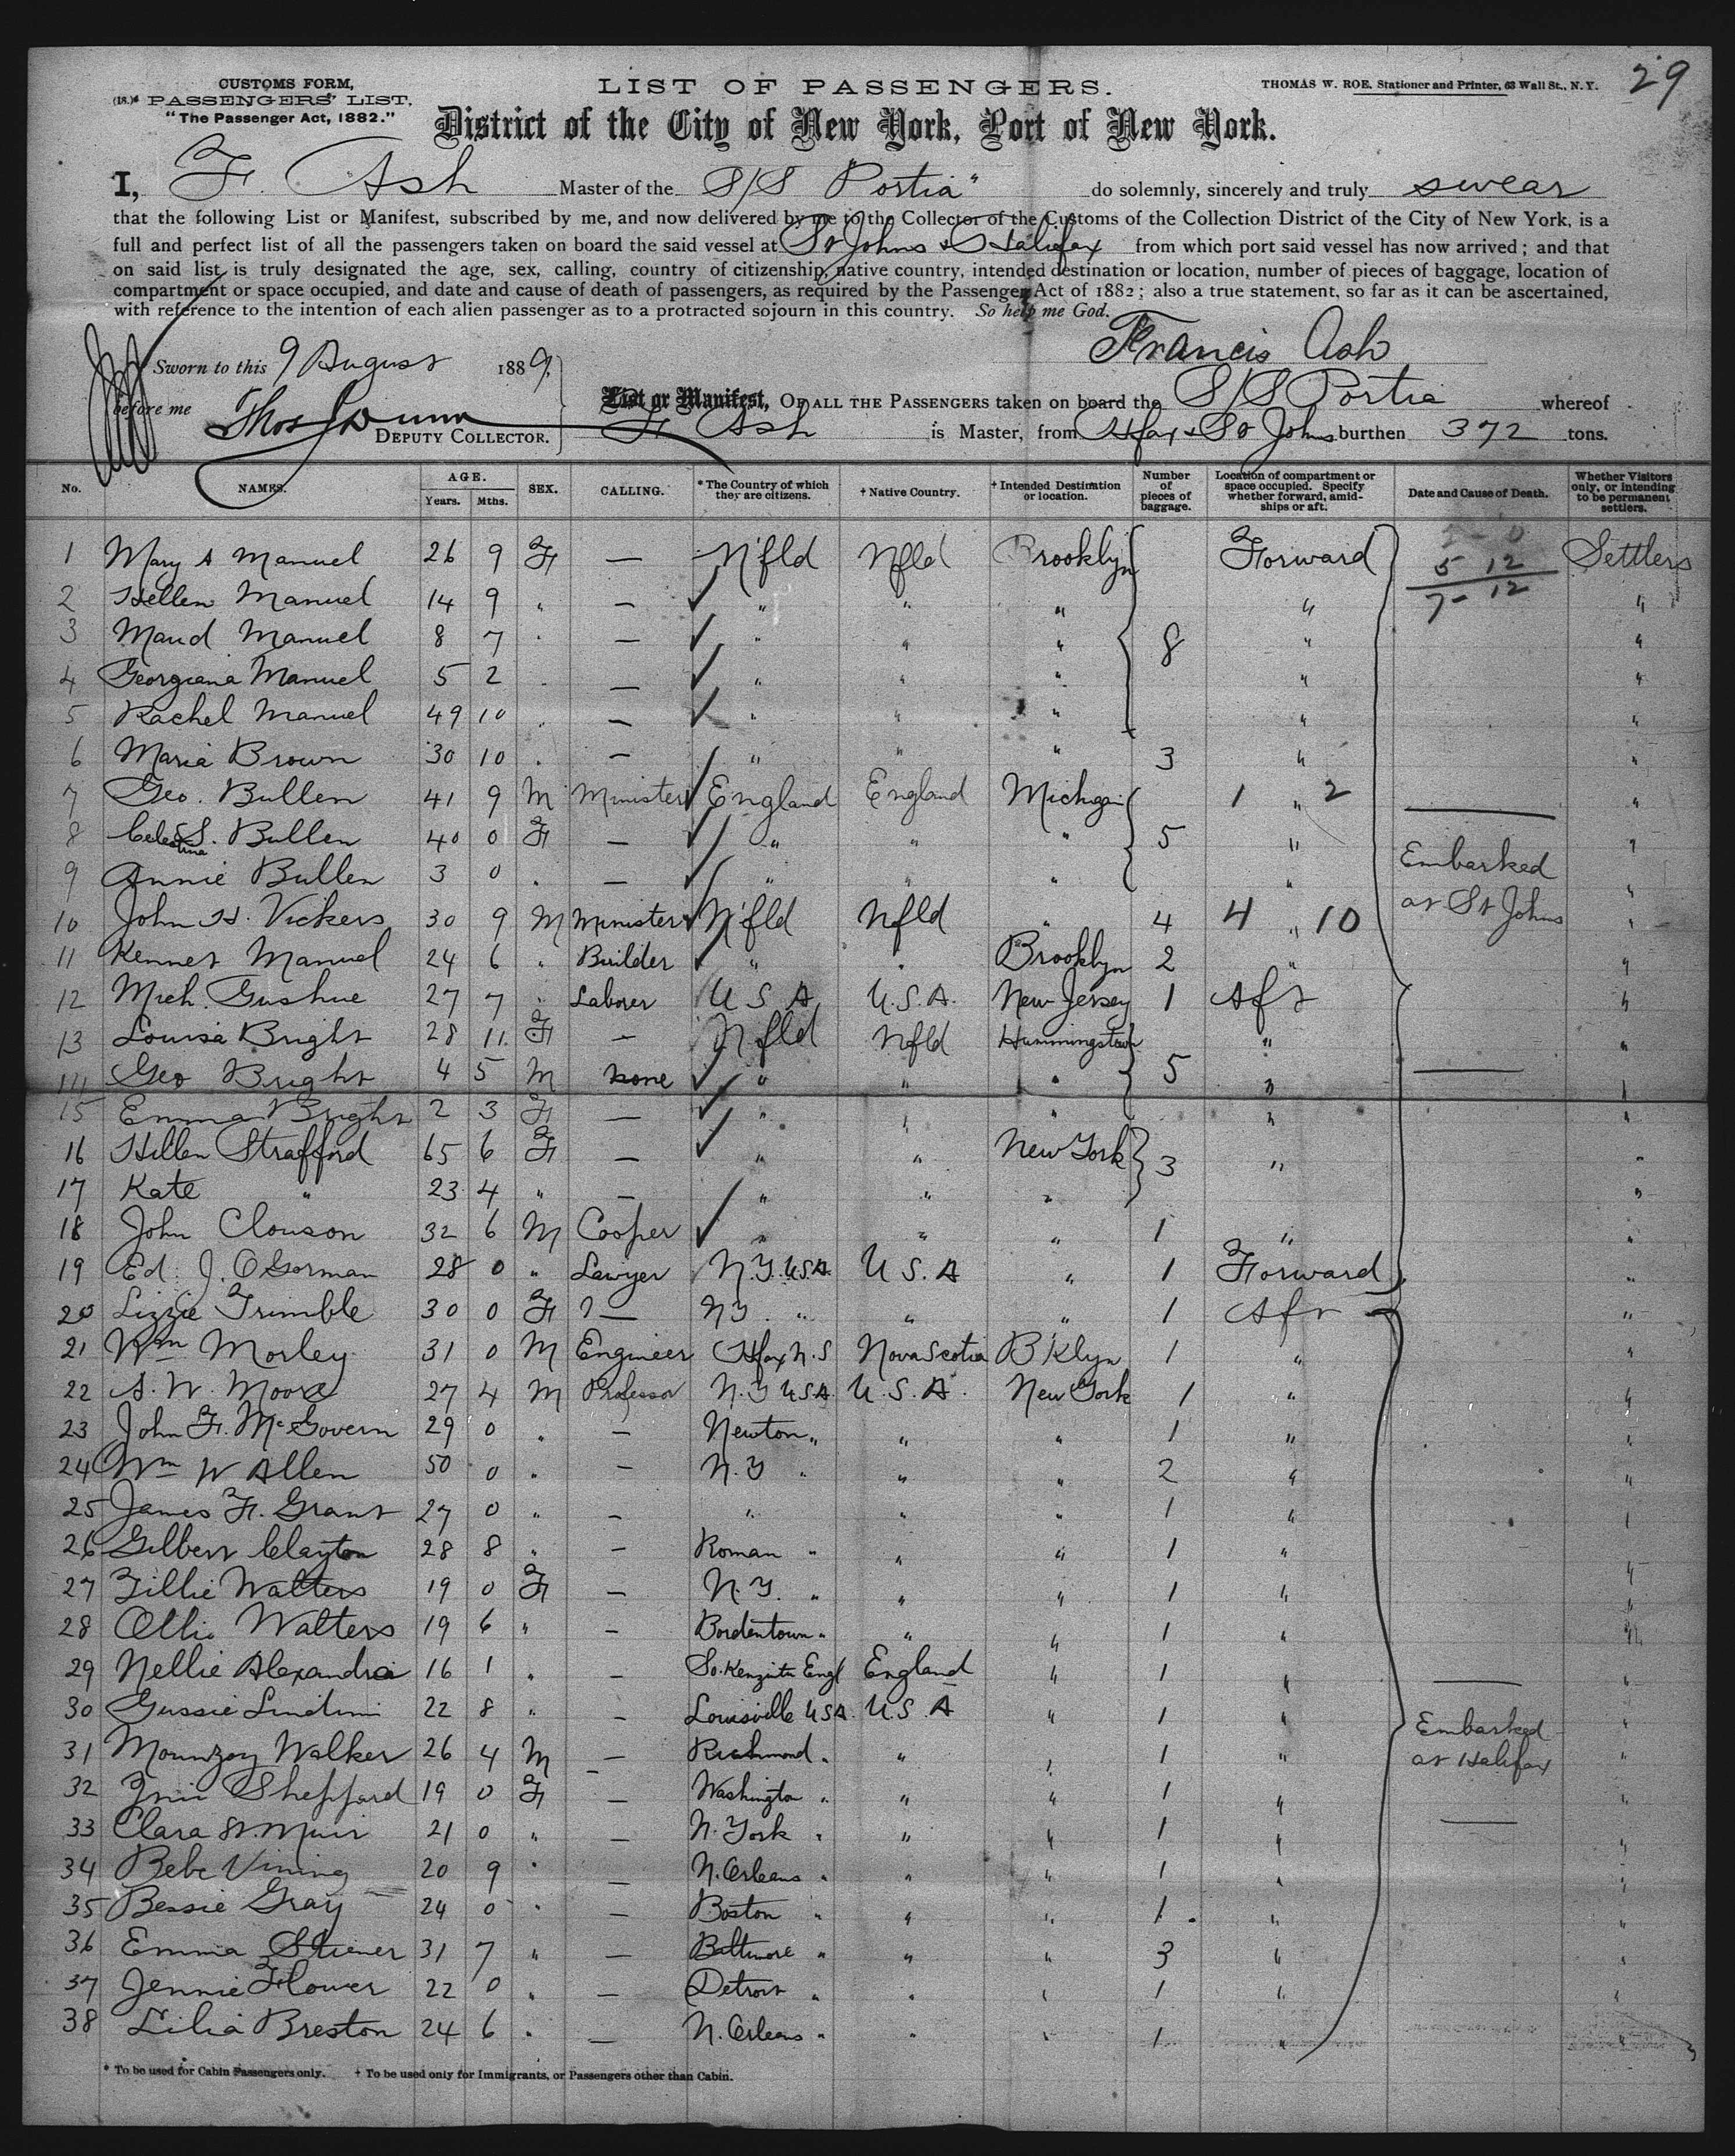 29
CUSTOMS FORM,
(18.)* PASSENGERS' LIST,
"The Passenger Act, 1882."
LIST OF PASSENGERS.
THOMAS W. ROE, Stationer and Printer, 63 Wall St., N.Y.
District of the City of New York, Port of New York.
I, F. Ash Master of the S/S Portia" do solemnly, sincerely and truly swear
that the following List or Manifest, subscribed by me, and now delivered by me to the Collector of the Customs of the Collection District of the City of New York, is a
full and perfect list of all the passengers taken on board the said vessel at St Johns & Halifax from which port said vessel has now arrived; and that
on said list is truly designated the age, sex, calling, country of citizenship, native country, intended destination or location, number of pieces of baggage, location of
compartment or space occupied, and date and cause of death of passengers, as required by the Passenger Act of 1882; also a true statement, so far as it can be ascertained,
with reference to the intention of each alien passenger as to a protracted sojourn in this country. So help me God.
Francis Ash
Sworn to this 9 August 1889,
before me Thos Dunn
DEPUTY COLLECTOR.
List or Manifest, OF ALL THE PASSENGERS taken on board the S/S Portia whereof
F. Ash is Master, from Hfax & St Johns burthen 372 tons.
No. NAMES. AGE. Years. Mths. SEX. CALLING. * The Country of which they are citizens. † Native Country. † Intended Destination or location. Number of pieces of baggage. Location of compartment or space occupied. Specify whether forward, amidships or aft. Date and Cause of Death. Whether Visitors only, or intending to be permanent settlers.
1 Mary A Manuel 26 9 F — N'fld Nfld Brooklyn Forward 5 12 Settlers
7- 12
2 Hellen Manuel 14 9 " — " " " " "
3 Maud Manuel 8 7 " — " " " 8 " "
4 Georgiana Manuel 5 2 " — " " " " "
5 Rachel Manuel 49 10 " — " " " " "
6 Maria Brown 30 10 " — " " " 3 " "
7 Geo. Bullen 41 9 M Minister England England Michigan 1 " 2 "
8 Celestina S. Bullen 40 0 F — " " " 5 " "
9 Annie Bullen 3 0 " — " " " " Embarked "
10 John H. Vickers 30 9 M Minister N'fld Nfld " 4 4 " 10 at St Johns "
11 Kennet Manuel 24 6 " Builder " " Brooklyn 2 " "
12 Mich. Gushue 27 7 " Laborer U S A U.S.A. New Jersey 1 Aft "
13 Louisa Bright 28 11 F — Nfld Nfld " "
14 Geo Bright 4 5 M none " " " 5 " "
15 Emma Bright 2 3 F — " " " " "
16 Hellen Strafford 65 6 F — " " New York 3 " "
17 Kate " 23 4 " — " " " "
18 John Clouson 32 6 M Cooper " " " 1 " "
19 Ed. J. OGorman 28 0 " Lawyer N.Y. USA U S. A " 1 Forward "
20 Lizzie Trimble 30 0 F — NY " " " 1 Aft "
21 Wm Morley 31 0 M Engineer Hfax N.S Nova Scotia B'Klyn 1 " "
22 A. W. Moore 27 4 M Professor N.Y USA. U.S.A. New York 1 " "
23 John F. McGovern 29 0 " — Newton " " " 1 " "
24 Wm W Allen 50 0 " — N.Y " " " 2 " "
25 James F. Grant 27 0 " — " " " 1 " "
26 Gilbert Clayton 28 8 " — Roman " " " 1 " "
27 Tillie Walters 19 0 F — N.Y. " " " 1 " "
28 Ollie Walters 19 6 " — Bordentown " " " 1 " "
29 Nellie Alexandria 16 1 " — So. Kenzintn Engl England " 1 " "
30 Gussie 22 8 " — Louisville USA. U.S.A " 1 " "
31 Mountzoy Walker 26 4 M — Richmond " " " 1 " Embarked at Halifax "
32 Sheppard 19 0 F — Washington " " " 1 " "
33 Clara St. Muir 21 0 " — N. York " " " 1 " "
34 Bebe Vining 20 9 " — N. Orleans " " " 1 " "
35 Bessie Gray 24 0 " — Boston " " " 1 " "
36 Emma 31 7 " — Baltimore " " " 3 " "
37 Jennie Flower 22 0 " — Detroit " " " 1 " "
38 Lilia Breston 24 6 " — N. Orleans " " " 1 " "
* To be used for Cabin Passengers only. † To be used only for Immigrants, or Passengers other than Cabin.